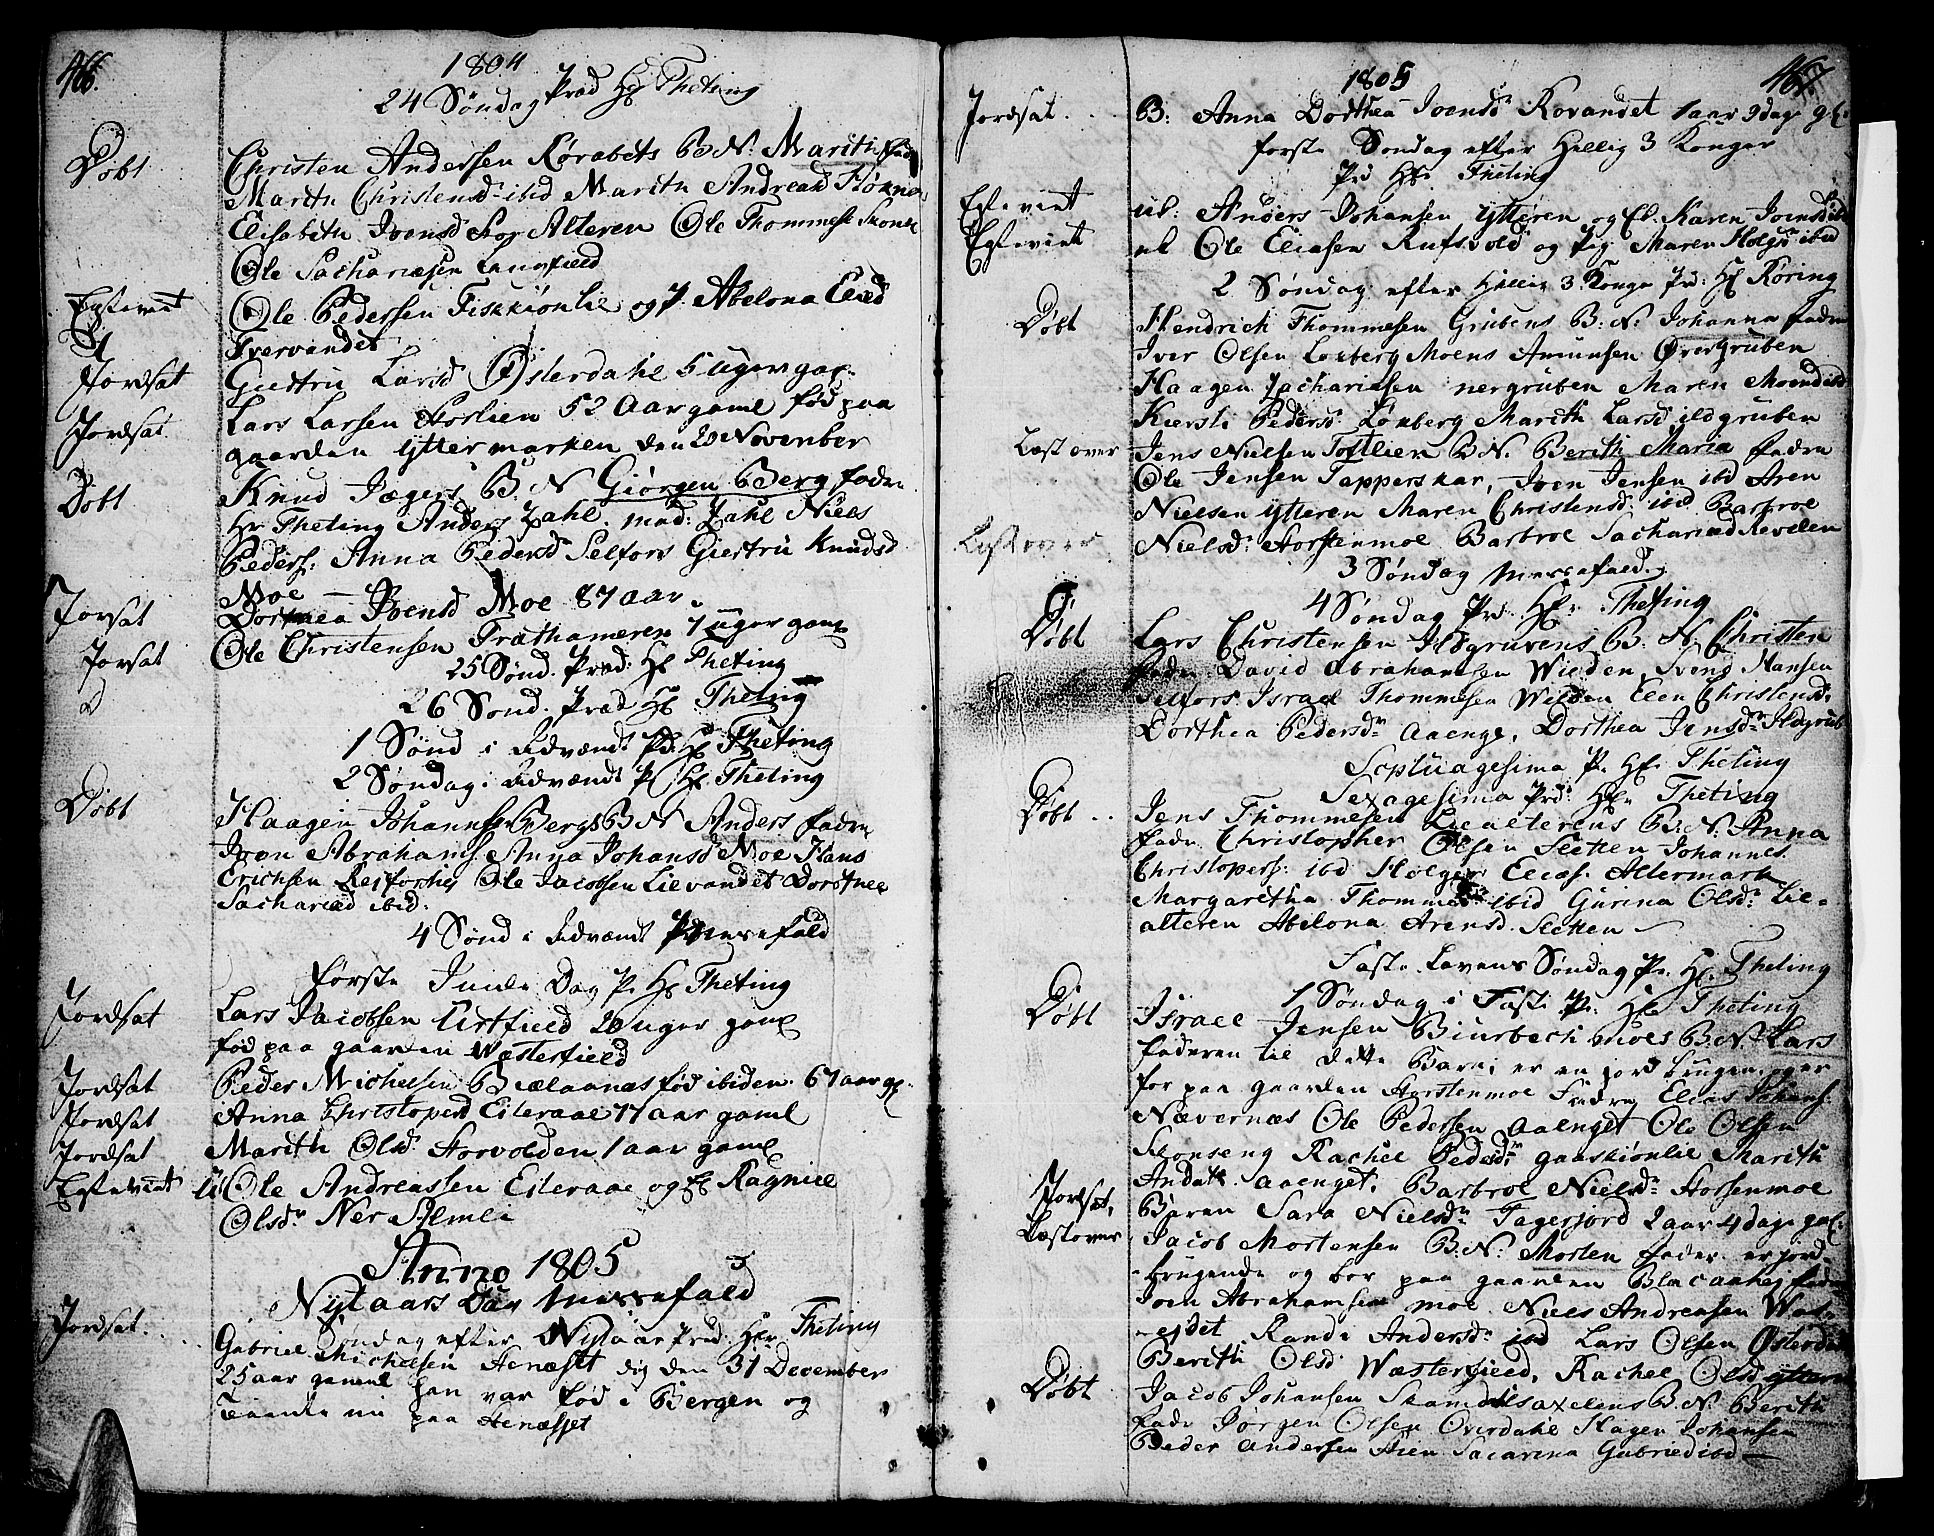 466.
1804
24 Søndag Præd Hr Theting
Døbt
Christen Andersen Rørabets B N. Marith fadr
Marith Christensd ibid Marith Andreasd Fløxnes
Elisabeth Joensd Stor Alteren Ole Thommese Skons
Ole Sachariæsen
Egtevint
Ole Pedersen Fiskkiønlie og P. Abelona Eliæd
Tvervandet
Jordsat
Giertru Larsd Østerdahl 5 uger gar.
Jordsat
Lars Larsen Storlien 52 Aar gaml fød paa
gaarden yttermarken den 20 November
Døbt
Knud Jægers B. N Giørgen Berg fadr.
Hr Theting Anders Zahl. mad: Zahl Niels
Peders: Anna Pedersd Selfors Giertru Knudsd
Moe —
Jorsat
Dorthea Joensd Moe 87 aar.
Jorsat
Ole Christensen Trathameren 7 uger gaml
25 Sønd. Præd: Hr Theting
D
26 Sond. Præd Hr Theting
1 Sønd i Advændt Pd Hr Theting
2 Søndag i Advændt P Hr Theting
Døbt
Haagen Johannsen Bergs B N Anders fadre
Joen Abrahams. Anna Johansd Moe Hans
Erichsen Ole Jacobsen Lievandet Dorothea
Sachariæd ibid.
4 Sønd i Advændt messefald
første Juule Dag P. Hr Theting
Jordsat
Lars Jacobsen Urtfield 20 uger gaml
fød paa gaarden Wæsterfield
Jordsat
Peder Michelsen Bielaanæs fød ibiden. 67 aar gl.
Jordsat
Anna Christopersd Eiteraae 77 aar gaml
Jordsat
Marith Olsd. Storvolden 1 aar gaml
Egtevint
Ole Andreassen Eiteraae og Ragnild
Olsdr Ner Almli
Anno 1805
Nytaars Dag messefald
Jordsat.
Søndag efter Nytaar Præd. Hr Theting
Gabriel Michelsen Hemnæsset dig den 31 December
25 aar gammel han var fød i Bergen og
tiænte nu paa Hemnæsset
467.
1805
Jordsat.
B: Anna Dorthea Joensd Rovandet 1 aar 9 dage gl.
første Søndag efter Hellig 3 Konger
Prd Hr Theting
Egtevint
Anders Johansen ytteren og Karen Joensd ibd
Egtevint
Ole Eliasen Rufsvold og Pig Maren Holgrsd ibid
2 Søndag efter Hillig 3 Konge Prd: Hr Røring
Døbt
Hendrich Thommesen Grubens B: N: Johanna fadre
Iver Olsen Loxberg Moens Amunsen Øvergruben
Haagen Zachariasen nergruben Maren Moensd ibd
Kiersti Pedersd Loxberg Marith Larsd ildgruben
Læst over
Jens Nielsen Toftlien B N. Berith Maria fadre
Ole Jensen Tapperskar, Joen Jensen ibd Aren
Nielsen ytteren Maren Christensd: ibid Barbroe
Læst over
Nielsd: Storstenmoe Barbroe Sachariæd Revelen
3 Søndag Messefald.
4 Søndag Prd. Hr Theting
Døbt
Lars Christensen Ildgruvens B: N: Christen
fadre David Abrahamsen Wielden Svend Hansen
Selfors Israel Thommesen Welden Elen Christensd.
Dorthea Pedersdr Aaenge, Dorthea Jensdr Ildgrub
Septuagesima P. Hr Theting
Sexagesima Prd: Hr Theting
Døbt
Jens Thommesen Liealterens B: N: Anna
fadr Christopher Olsen Sletten Johannes
Christopers: ibd Holger Elias: Altermark
Margaretha Thommesd ibid Gurina Olsdr Lie-
alteren Abelona Arensd. Sletten
Faste Lavens Søndag Pr. Hr Theting
1 Søndag i Faste Pr. Hr Theting
Døbt
Israel Jensen Biurbech moes B. N. Lars
faderen til dette Barn er en jord brugen, og er
for paa gaarden Storstenmoe Fadre, Elias Johans:
Nævernæs Ole Pedersen Aaenget Ole Olsen
Skonseng Rachel Pedersdr gaaskiønlie Marith
Andatt. aaenget. Barbroe Nielsdr Storstenmoe
Jordsat,
Baren Sara Nielsdr 2 aar 4 dage gal:
Læst over
Jacob Mortensen B: N: Morten fader er jord
brugende og bor paa gaarden Blacaahej fadre
Joen Abrahamsen moe. Niels Andreasen
ejdet. Randi Andersdr ibd Lars Olsen Østerdal
Berith Olsd. Wæsterfield, Rachel Olsd ytteren
Døbt
Jacob Johansen B. N. Berith
fadr Jørgen Olsen Overdahl Hagen Johansen
Peder Andersen Sacarina Gabriesd ibd —